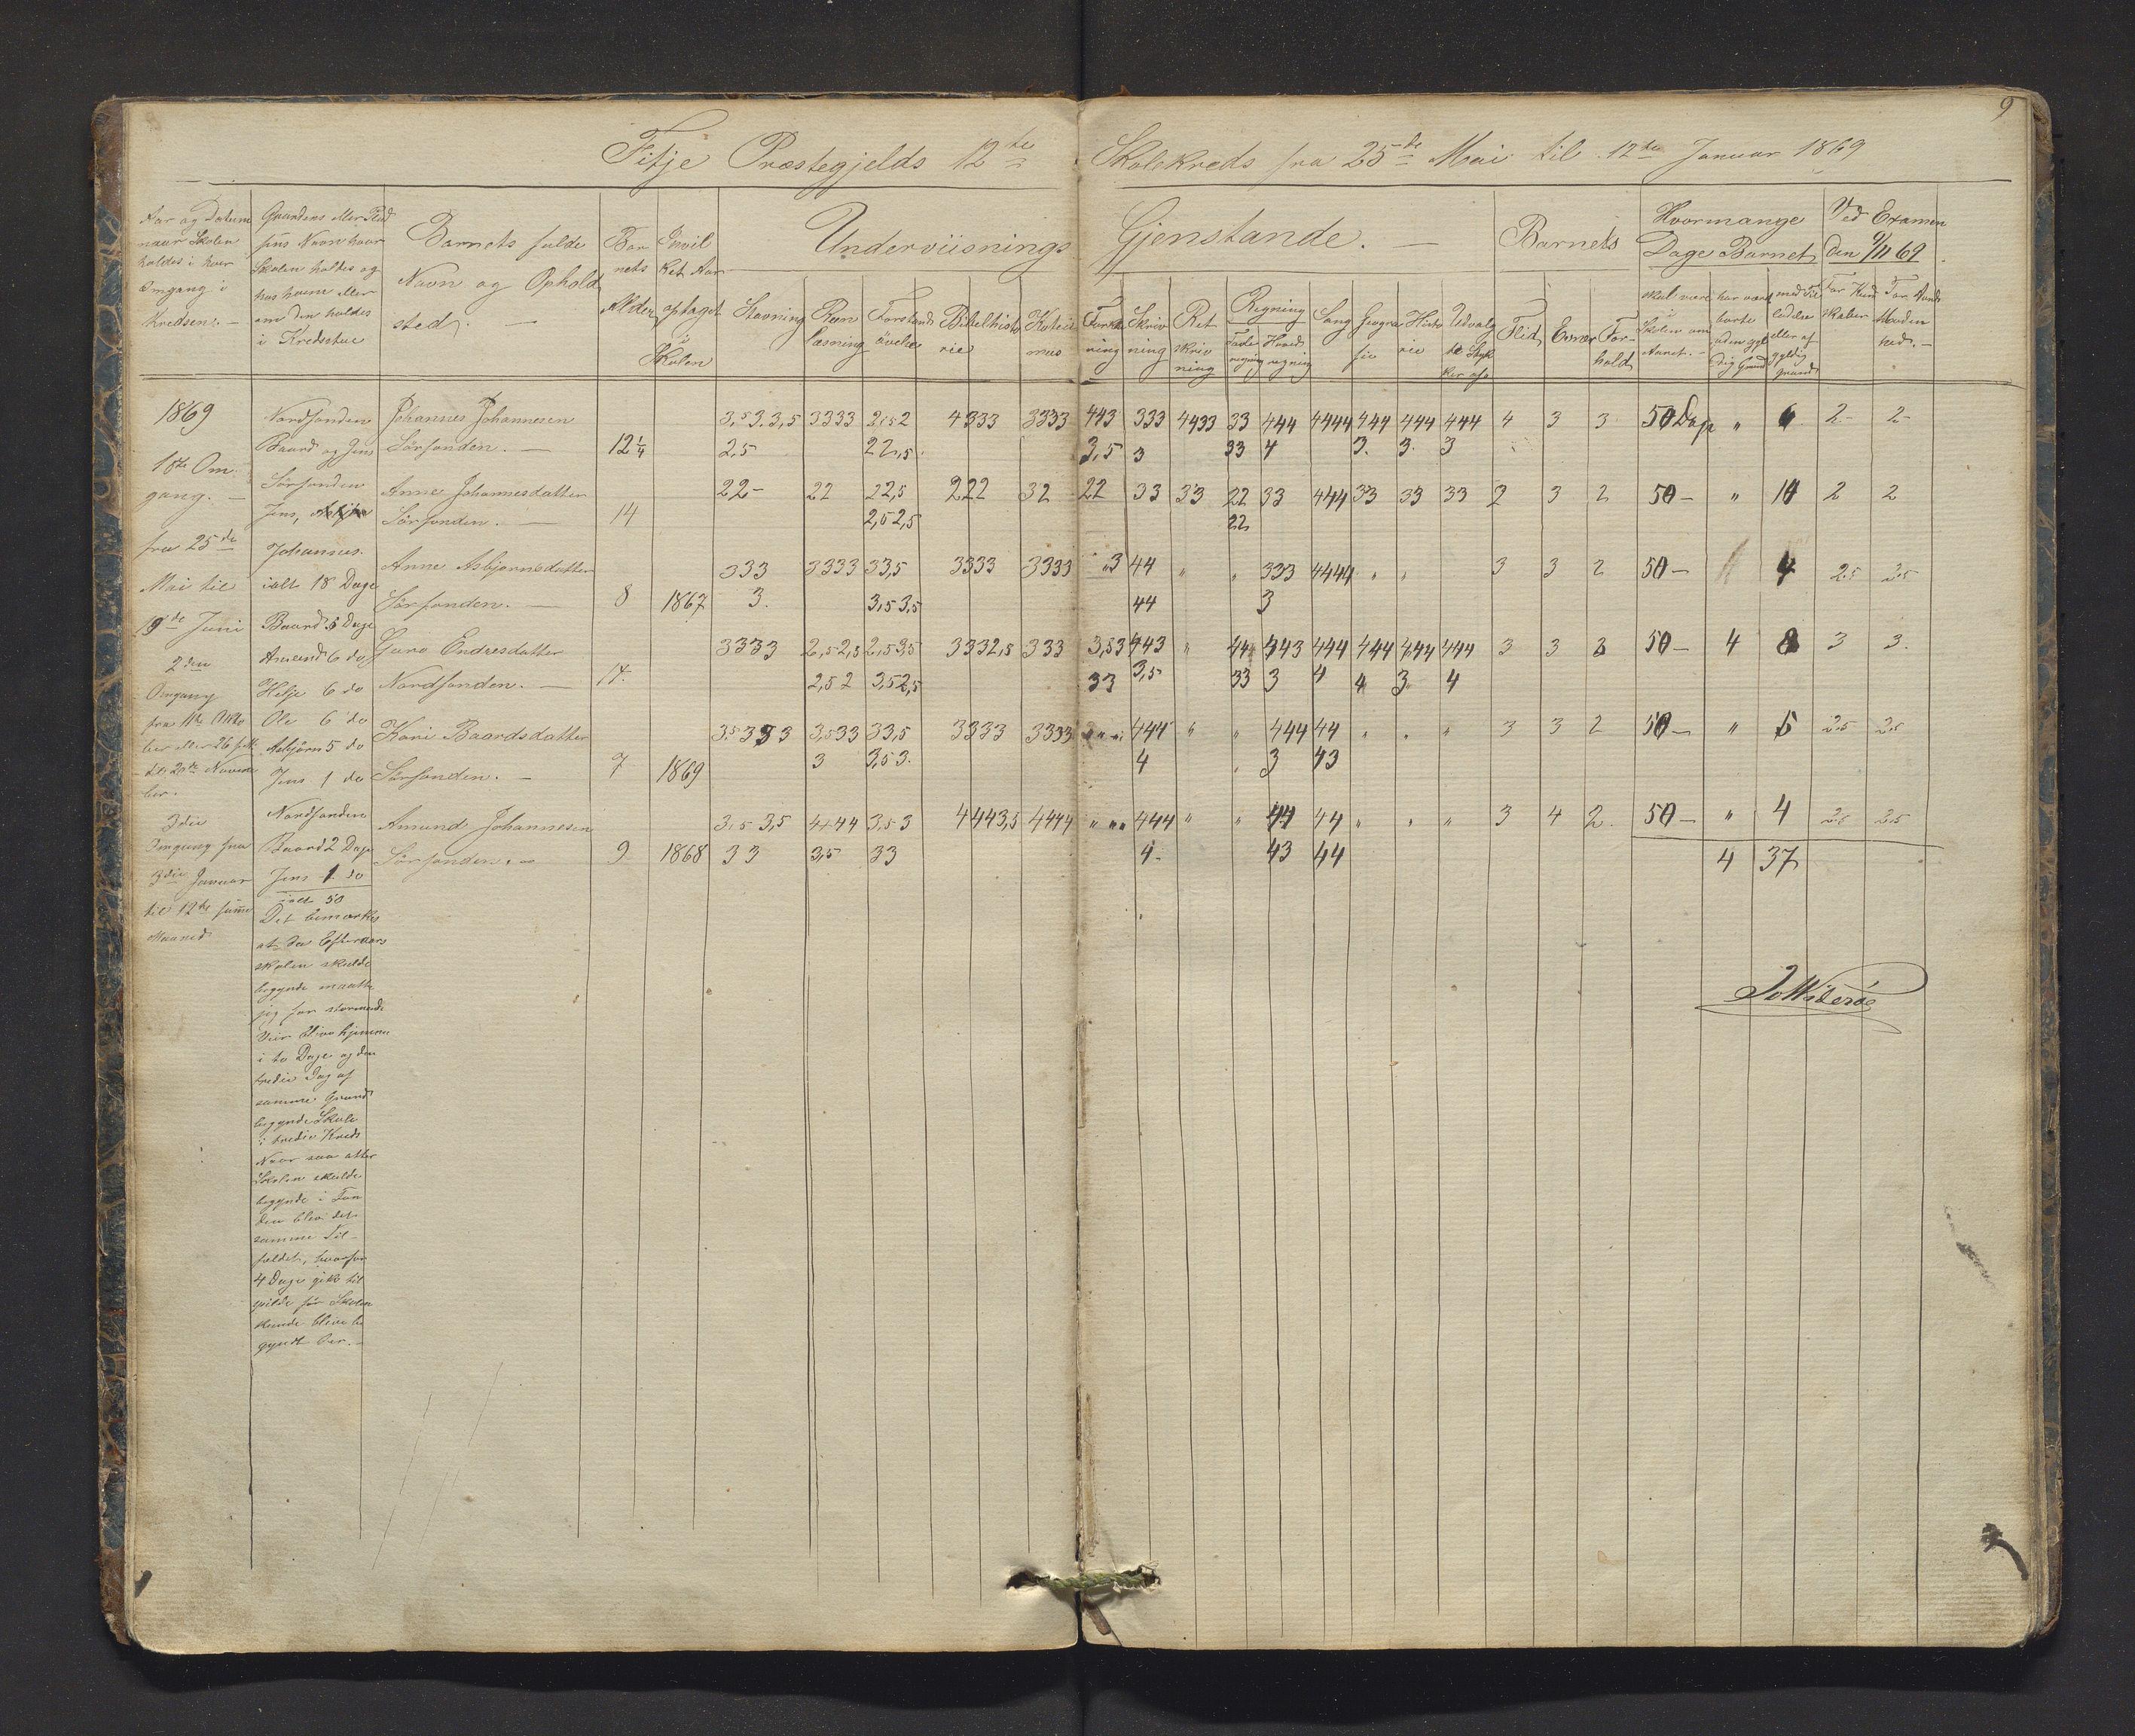 9
Fitje Præstegjelds 12te Skolekreds fra 25de Mai til 12te Januar 1869
Aar og Datum
naar Skolen
holdes i hver
Omgang i
Kredsen. —
Gaardens eller Plad
sens Navn hvor
Skolen holdes og
hos hvem eller
om den holdes
i Kredsstue
Barnets fulde
Navn og Ophold
sted. —
Bar
nets
Alder
Hvil
ket Aar
optaget
i
Skolen
Underviisnings Gjenstande. —
Stavning
Reen
læsning
Forstands
øvelse
Bibelhisto
rie
Katekis
mus
Forkla
ring
Skriv
ning
Ret
skriv
ning
Regning
Tavle
regning
Hoved
regning
Sang
Geogra
fie
Histo
rie
Udvalg
te Styk
ker af
Barnets
Flid
Evner
For-
hold
Hvormange
Dage Barnet
skal være
i
Skolen om
Aaret. —
har været
borte
uden gyl
dig Grund
med Til
ladelse
eller af
gyldig
Grund
Ved Examen
den 9/11 69
For Kund
skaber
For Aands
Moden
hed. —
1869
1ste Om
gang. —
fra 25de
Mai til
19de Juni
2den
Omgang
til 20de Novem
ber.
3die
Omgang fra
3die Januar
til 12te samme
Maaned
Nordfonden
Baard og Jens
Sørfonden
Jens,
Johannes
ialt 18 Dage
Baard 5 Dage
Amund 6 do
Helje 6 do
Ole 6 do
Asbjørn 5 do
Jens 1 do
Nordfonden
Baard 2 Dage
Jens 1 do
ialt 50
Det bemærkes
at da Efteraars
skolen skulde
begynde maatte
jeg for stormende
Veir blive hjemme
i to Dage og den
tredie Dag af
samme Grund
begynde Skole
i tredie Kreds
Naar saa atter
Skolen skulde
begynde i Fon
den blev det
samme Til-
fældet, hvorfor
4 Dage gik til
spilde før Skolen
kunde blive be
gyndt her. —
Johannes Johannesen 3,5 3. 3,5 3333 2,5 2 4333 3333 443 333 4433 33 444 4444 444 444 444 4 3 3 50 Dage " 6 2- 2-
Sørfonden. — 12¼ 2,5 22,5 3,5 3 33 4 3. 3. 3
Anne Johannesdatter 22- 22 22,5 222 32 22 33 33 22 33 444 33 33 33 2 3 2 50- " 10 2 2
Sørfonden. — 14 2,5 2,5 22
Anne Asbjørnsdatter 333 3333 33,5 3333 3333 3 44 " " 333 4444 " " 3 3 2 50- 4 2,5 2,5
Sørfonden. — 8 1867 3. 3,5 3,5 44 3
Guro Endresdatter 3333 2,5 2,5 2,5 3,5 3332,5 333 3,53 443 " 44 443 444 444 444 444 3 3 3 50- 4 8 3 3.
Nordfonden. — 14. 2,5 2 3,5 2,5 33 3,5 33 3 4 4 3. 4
Kari Baardsdatter 3,5 333 3,5 33 33,5 3333 3333 " " " 444 " " 444 44 " " " 3 3 2 50- " 5 2,5 2,5
Sørfonden. — 7 1869 3 3,5 3. 4 3 43
Amund Johannesen 3,5 3,5 4444 3,5 3 4443,5 4444 " " " 444 " " 44 44 " " " 3 4 2. 50- " 4 2,5 2,5
Sørfonden. — 9 1868 33 3,5 33 4- 43 44
4 37